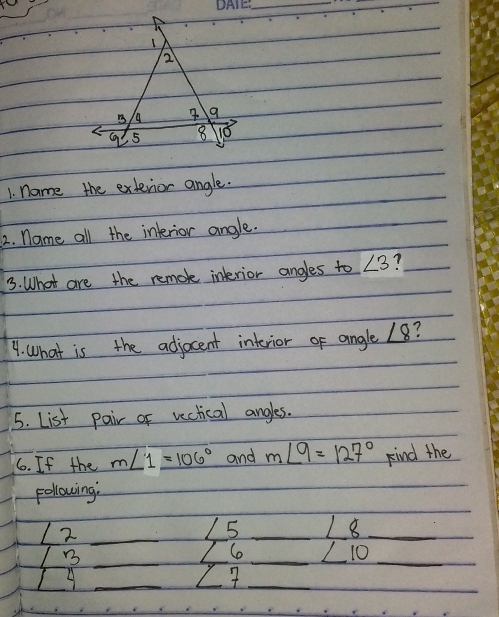 DATE:
1
2
3 4 7 9
6 5 8 10
1. Name the exterior angle.
2. Name all the interior angle.
3. What are the remote interior angles to ∠3?
4. What is the adjacent interior of angle ∠8?
5. List pair of vectical angles.
6. If the m∠1 = 106° and m∠9 = 127° find the
following:
∠2 ____ ∠5 ____ ∠8 ____
∠3 ____ ∠6 ____ ∠10 ____
∠4 ____ ∠7 ____